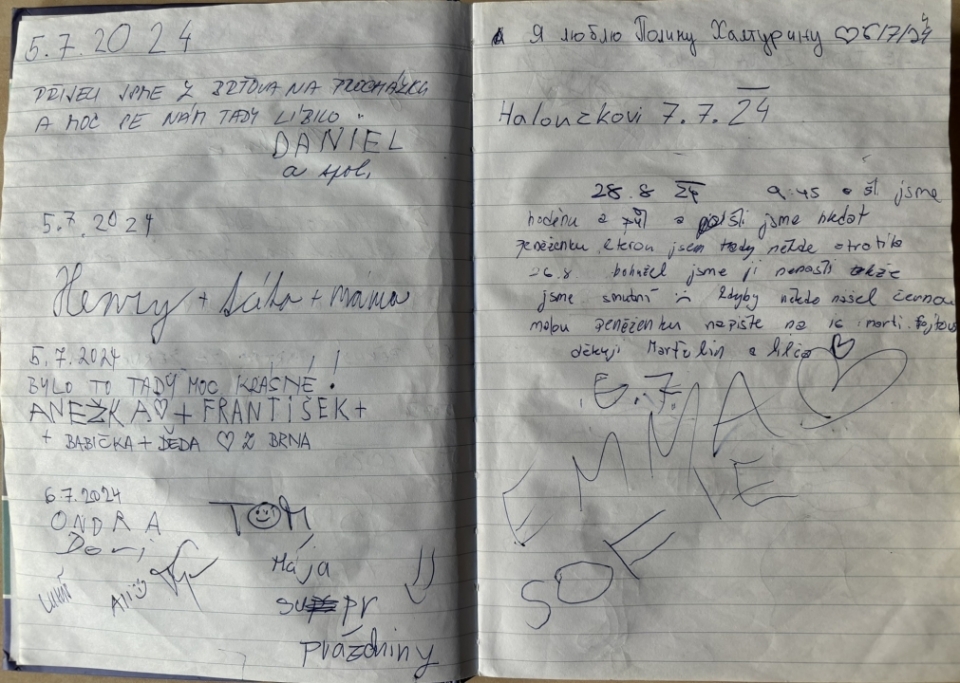 5.7.2024
PŘIJELI JSME Z BRŤOVA NA PROCHÁZKU
A MOC SE NÁM TADY LÍBILO
DANIEL
a spol.
5.7.2024
Henry + + máma
5.7.2024
BYLO TO TADY MOC KRÁSNÉ!
ANEŽKA ♡ + FRANTIŠEK +
+ BABIČKA + DĚDA ♡ Z BRNA
6.7.2024
ONDRA
TOM
Mája
pr
prázdniny
Я люблю Полину Халтурину ♡ 6/7/24
Halouzkovi 7.7.24
28.8 24 9:45 šli jsme
hodinu a půl a jsme hledat
peněženku kterou jsem tady někde ztratila
26.8. bohužel jsme ji nenašli takže
jsme smutní kdyby někdo našel černou
malou peněženku napište na IG
děkuji a ♡
6.7.
EMMA ♡
SOFIE